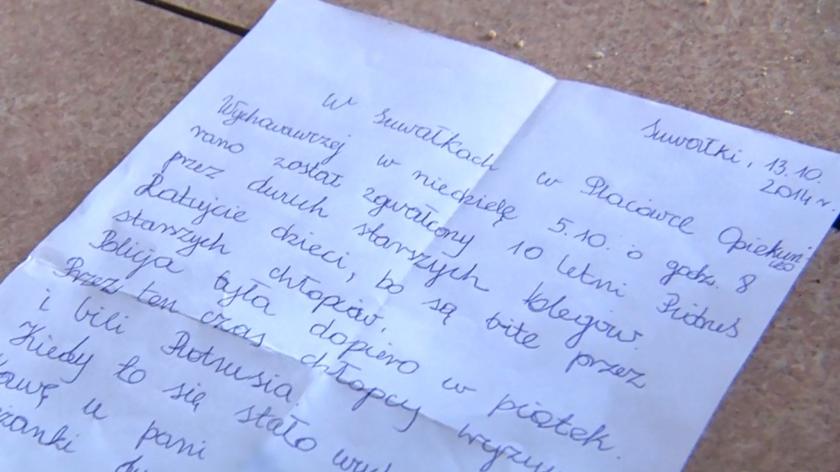 Suwałki, 13.10.
2014 r.
W Suwałkach w Placówce Opiekuń
czo
Wychowawczej w niedzielę 5.10. o godz. 8
rano został zgwałcony 10 letni Piotruś
przez dwuch starszych kolegów.
Ratujcie dzieci, bo są bite przez
starszych chłopców.
Policja była dopiero w piątek.
Przez ten czas chłopcy
i bili Piotrusia
Kiedy to się stało
u pani